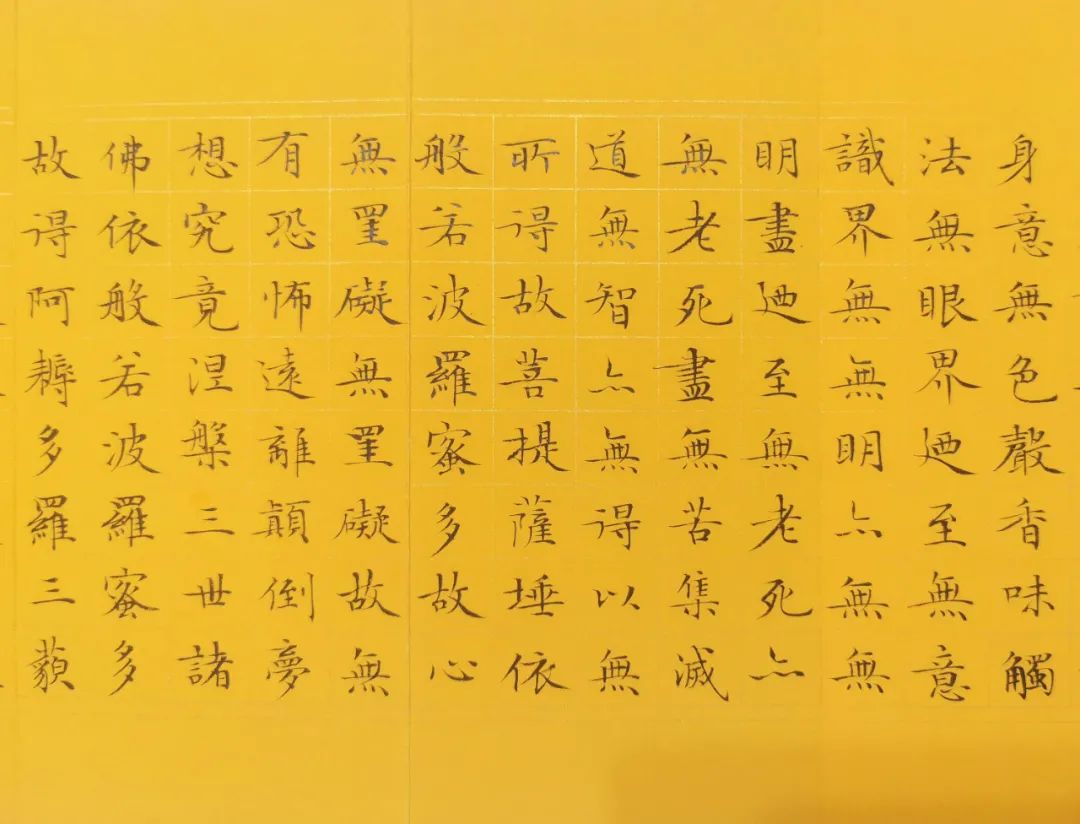 身意無色聲香味觸
法無眼界廼至無意
識界無無明亦無無
明盡廼至無老死亦
無老死盡無苦集滅
道無智亦無得以無
所得故菩提薩埵依
般若波羅蜜多故心
無罣礙無罣礙故無
有恐怖遠離顛倒夢
想究竟涅槃三世諸
佛依般若波羅蜜多
故得阿耨多羅三藐